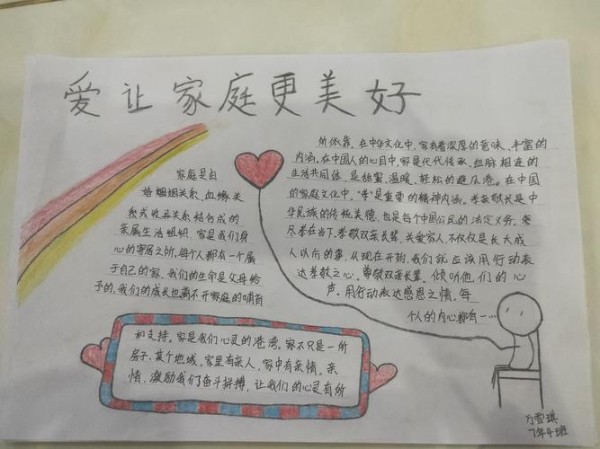 爱让家庭更美好
家庭是由
婚姻姻关系、血缘关
系或收养关系结合成的
亲属生活组织。家是我们身
心的寄居之所,每个人都有一个属
于自己的家,我们的生命是父母给
予的,我们的成长也离不开家庭的哺育
和支持。家是我们心灵的港湾,家不只是一所
房子,某个地域,家里有亲人,家中有亲情。亲
情,激励我们奋斗拼搏,让我们的心灵有所
所依靠。在中华文化中,家有着深厚的意味、丰富的
内涵。在中国人的心目中,家是代代传承、血脉相连的
生活共同体,是甜蜜、温暖、轻松的避风港。在中国
的家庭文化中,“孝”是重要的精神内涵。孝亲敬长是中
华民族的传统美德,也是每个中国公民的法定义务。
尽孝在当下,孝敬双亲长辈、关爱家人,不仅仅是长大成
人以后的事,从现在开始,我们就应该用行动表
达孝敬之心。尊敬双亲长辈,倾听他们的心
声,用行动表达感恩之情,每
个人的内心都有一…
7年4班